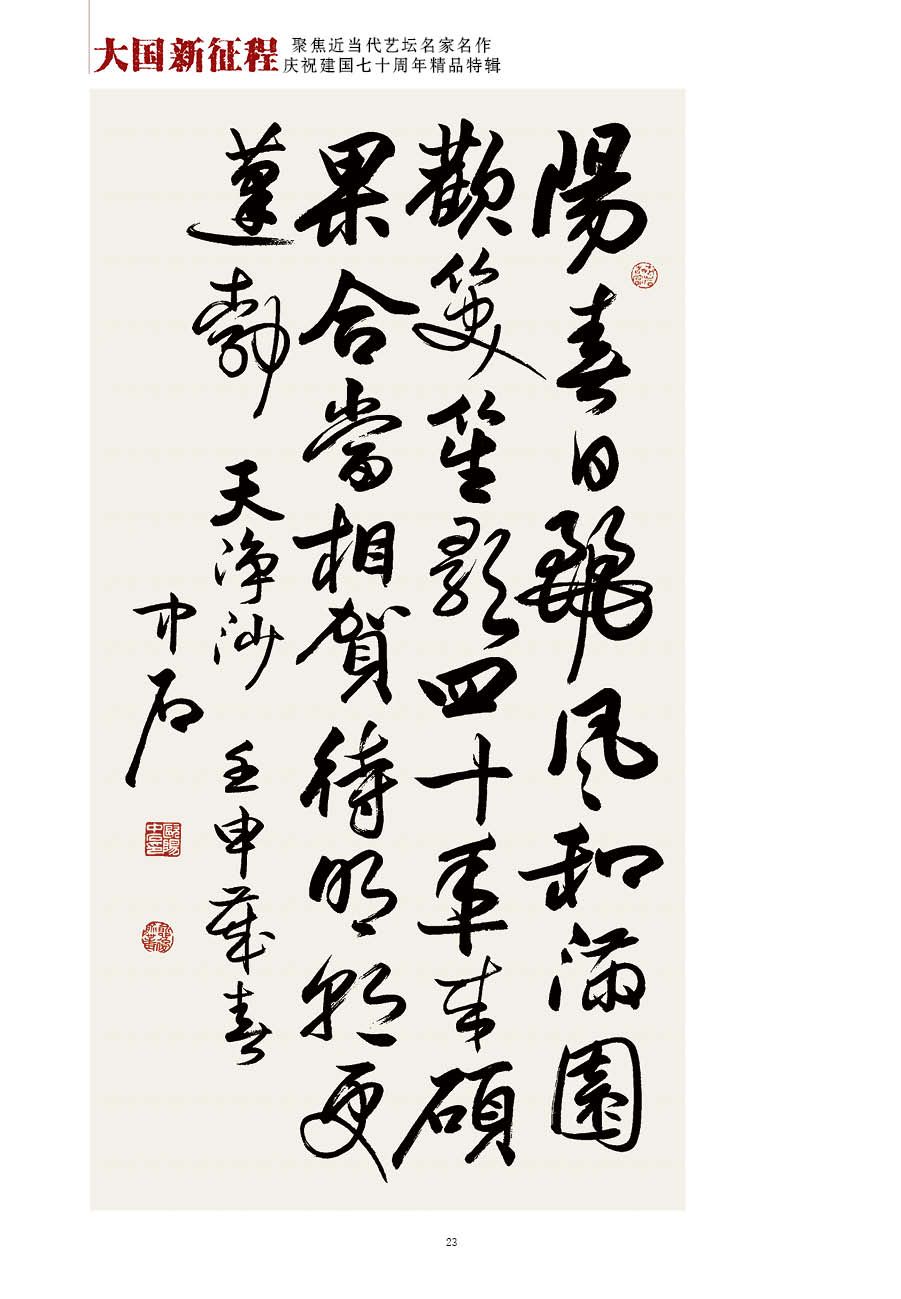 大国新征程
聚焦近当代艺坛名家名作
庆祝建国七十周年精品特辑
陽春日麗風和滿園
歡笑笙歌四十年来碩
果合當相賀待明朝更
蓬勃
天净沙 壬申歲春
中石
23